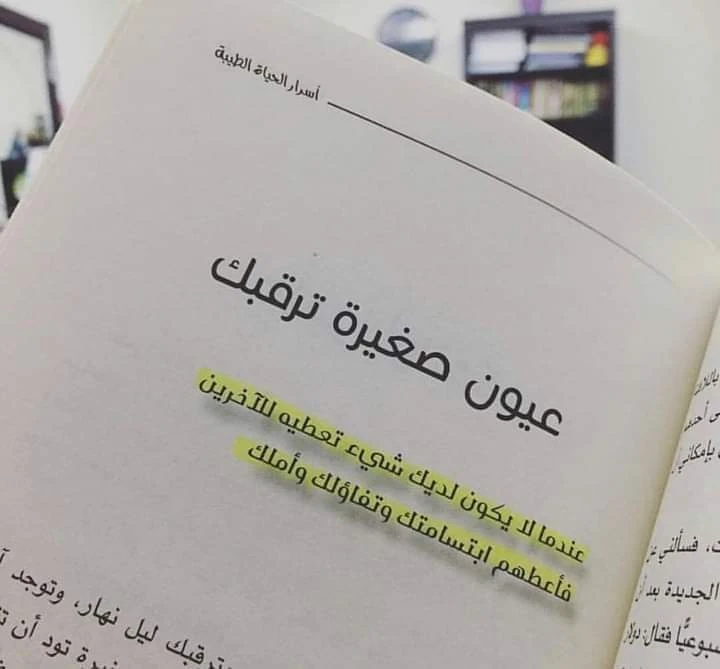 أسرار الحياة الطيبة
عيون صغيرة ترقبك
عندما لا يكون لديك شيء تعطيه للآخرين
فأعطهم ابتسامتك وتفاؤلك وأملك
ترقبك ليل نهار، وتوجد
تود أن
بإمكاني
فسألني
الجديدة بعد أن
فقال: دولار